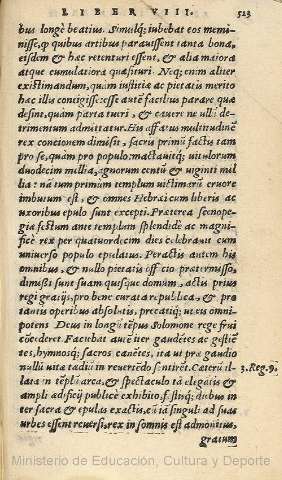 LIBER VIII. 523
bus longè beatius. Simulq́; iubebat eos memi-
nisse, ꝙ quibus artibus parauissent tanta bona,
eisdem & hæc retenturi essent, & alia maiora
atque cumulatiora quæsituri. Neq; enim aliter
existimandum, quam iustitiæ ac pietatis merito
hæc illis contigisse: esse autē facilius parare quæ
desint, quàm parta tueri, & cauere ne ulli de-
trimentum admittatur. His affatus multitudinē
rex concionem dimisit, sacris primū factis tam
pro se, quàm pro populo: mactauitq́; uitulorum
duodecim millia, agnorum centū & uiginti mil
lia: nā tum primum templum uictimarū cruore
imbutum est, & omnes Hebræi cum liberis ac
uxoribus epulo sunt excepti. Præterea scenope-
gia festum ante templum splendidè ac magni-
ficè rex per quatuordecim dies celebrauit cum
uniuerso populo epulatus. Peractis autem his
omnibus, & nullo pietatis officio prætermisso,
dimissi sunt suam quisque domum, actis prius
regi gratijs, pro bene curata republica, & præ
tantis operibus absolutis, precatiq́; ut eis omni-
potens Deus in longū tēpus Solomone rege frui
cōcederet. Faciebāt autē iter gaudētes ac gestiē
tes, hymnosq́; sacros canētes, ita ut præ gaudio
nullū uiæ tædiū in reuertēdo sentirēt. Cæterū il-
3. Reg. 9.
lata in tēplū arca, & spectaculo tā elegātis &
ampli ædificij publicè exhibito, festisq́; diebus in
ter sacra & epulas exactis, cū iā singuli ad suas
urbes essent reuersi, rex in somnis est admonitus,
gratum
Ministerio de Educación, Cultura y Deporte